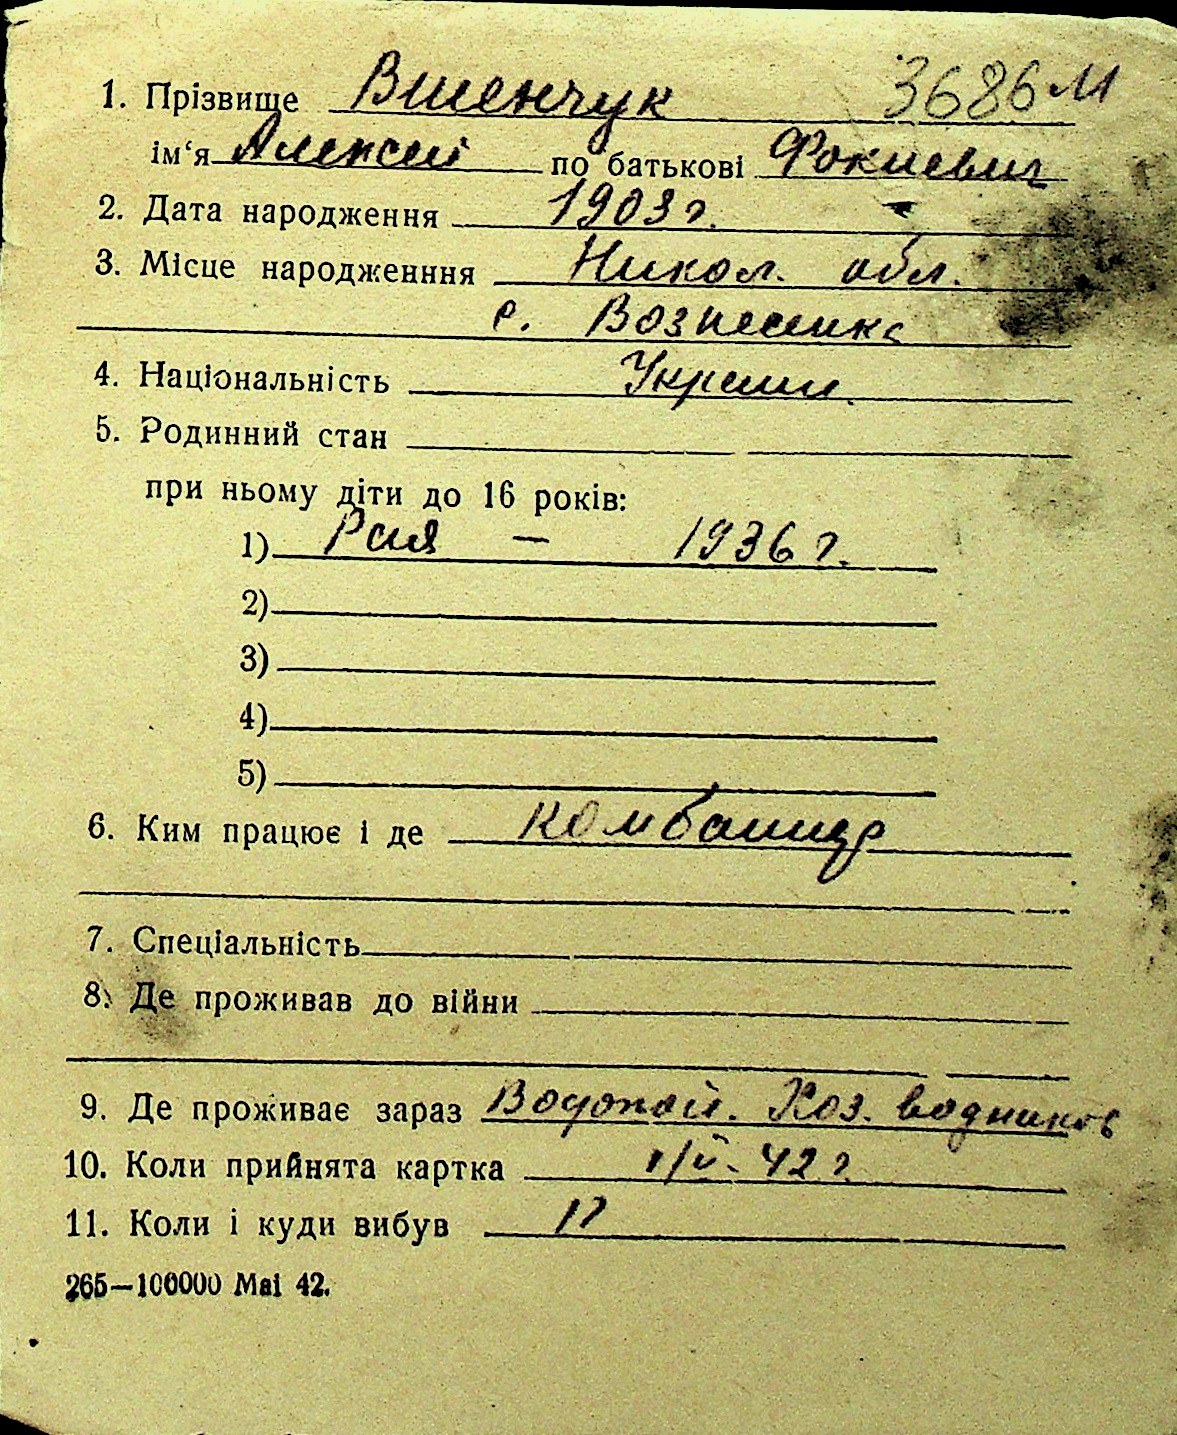 1. Прізвище Вшенчук 3686 м
ім‘я Алексей по батькові Фокиевич
2. Дата народження 1903 г.
3. Місце народженння Никол. обл.
с. Вознесенка
4. Національність Украин.
5. Родинний стан
при ньому діти до 16 років:
1) Рая — 1936 г.
2)
3)
4)
5)
6. Ким працює і де комбайнер
7. Спеціальність
8. Де проживав до війни
9. Де проживає зараз Водопой. Хоз. водников
10. Коли прийнята картка 42 г.
11. Коли і куди вибув
265—100000 Mai 42.